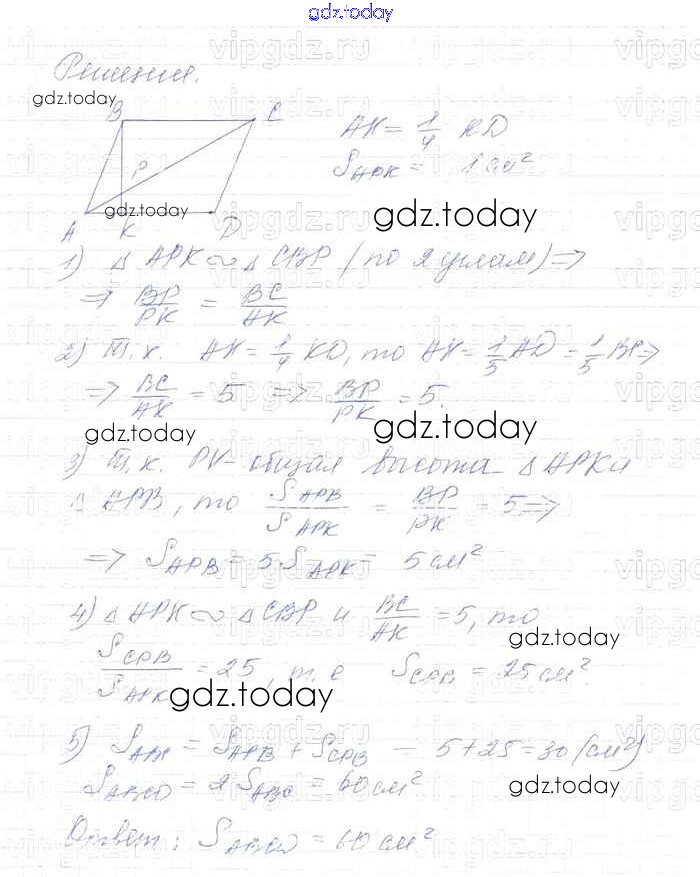 gdz.today
vipgdz.ru
Решение.
gdz.today
B C
P
A K D
gdz.today
AK = 1/4 KD
S_APK = 1 см²
gdz.today
1) Δ APK ∾ Δ CBP (по 2 углам) ⇒
⇒ BP/PK = BC/AK
2) Т.к. AK = 1/4 KD, то AK = 1/5 AD = 1/5 BC ⇒
⇒ BC/AK = 5 ⇒ BP/PK = 5.
gdz.today
gdz.today
3) Т.к. общая высота Δ APK и
Δ APB, то S_APB/S_APK = BP/PK = 5 ⇒
⇒ S_APB = 5 S_APK = 5 см²
4) Δ APK ∾ Δ CBP и BC/AK = 5, то
gdz.today
S_CPB/S_APK = 25, т.е S_CPB = 25 см²
gdz.today
5) S_ABC = S_APB + S_CPB = 5 + 25 = 30 (см²)
S_ABCD = 2 S_ABC = 60 см²
gdz.today
Ответ: S_ABCD = 60 см²